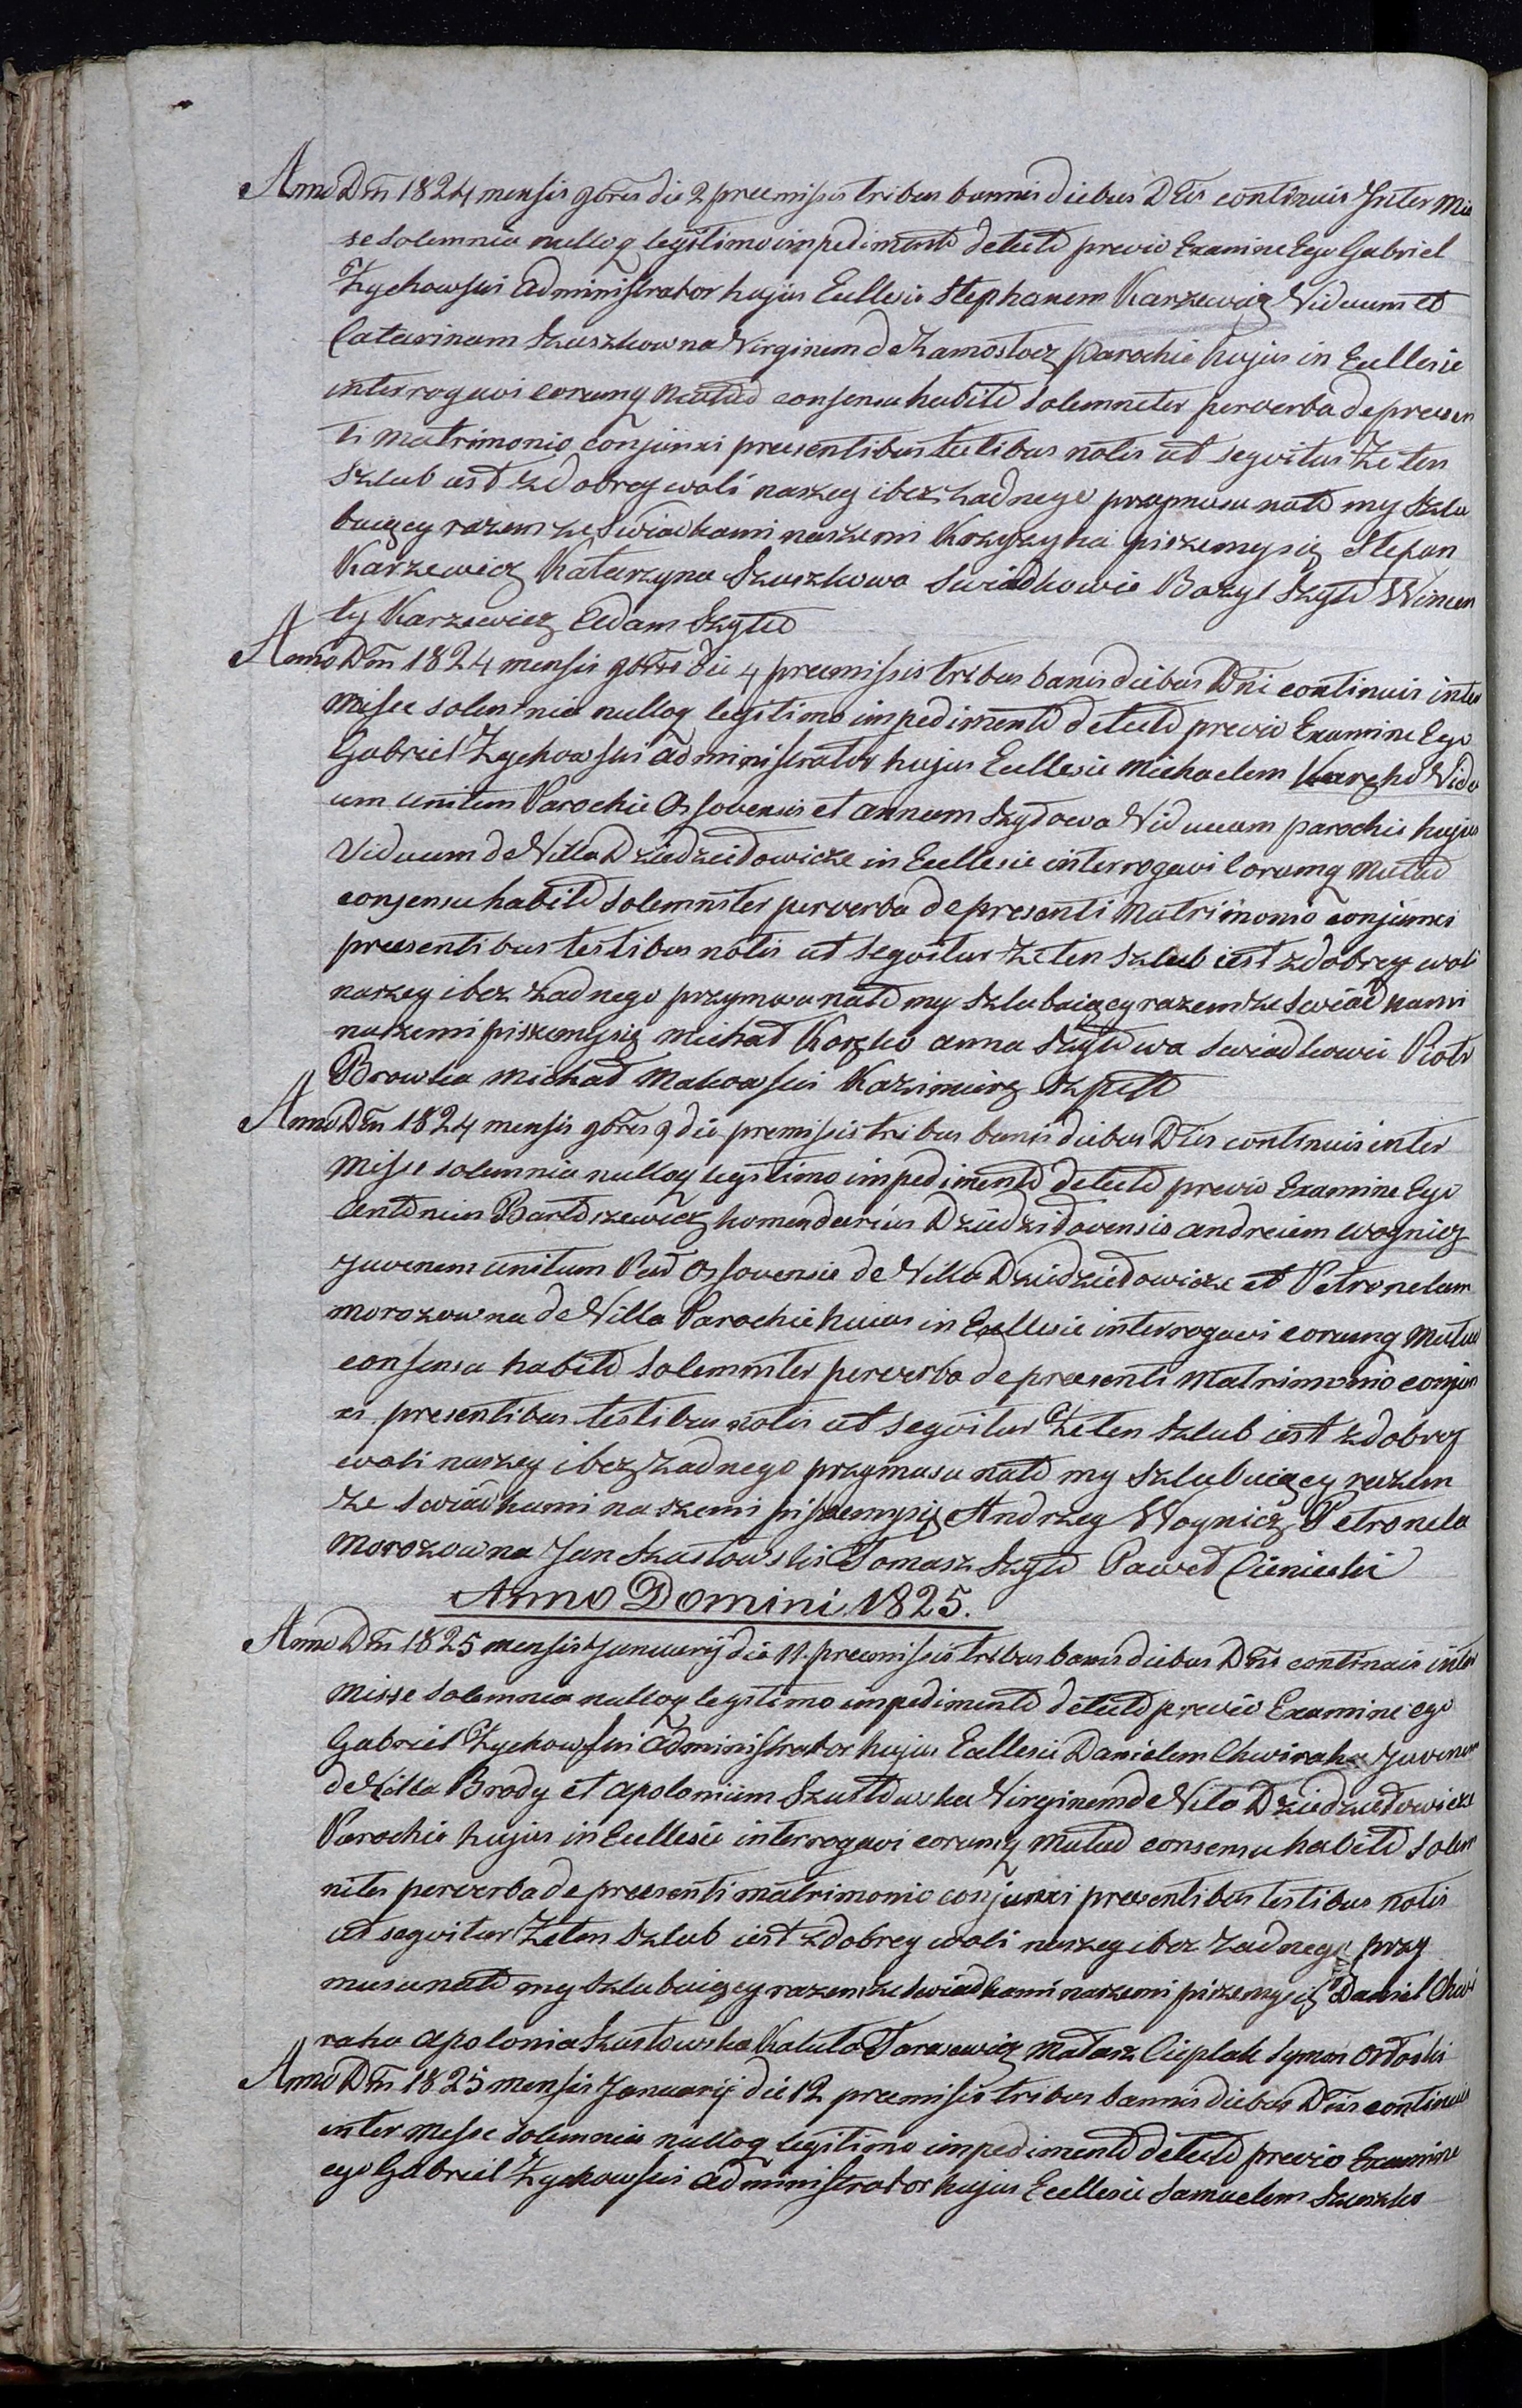 Anno Dm̃ 1824 mensis 9bris die 2 premissis tribus bannis diebus Dñis continuis Inter Mis
se Solemnia nulloq legitimo impedimento detecto previo Examine Ego Gabriel
Zychowski Administrator hujus Ecllesie Stephanum Karzewicz Viduum et
Catarinam Szuszkowna Virginem de Zamostocz parochie hujus in Ecllesie
interrogavi eorumq Mutuo consensu habito Solemniter per verba de presen
ti Matrimonio conjunxi presentibus testibus notis ut seqvitur Ze ten
Szlub iest z dobrey woli naszey i bez żadnego przymusu nato my Szlu
buiący razem ze Swiadkami naszemi Krzyzyka piszemysię Stefan
Karzewicz Katarzyna Szuszkowa Swiadkowie Bazyl Szyło Wincen
ty Karzewicz Adam Szyło
Anno Dm̃ 1824 mensis 9bris die 4 premissis tribus banis diebus Dñi continuis inter
Misse solemnia nulloq legitimo impedimento detecto previo Examine Ego
Gabriel Zychowski administrator hujus Ecllesie Michaelem Korzko Vidu
um unitum Parochie Ossovensis et annam Szyłowa Viduam parochie hujus
Viduam de Villa Dziedziełowicze in Ecllesie interrogavi Eorumq Mutuo
consensu habito Solemniter per verba de presenti Matrimonio conjunxi
presentibus testibus notis ut Seqvitur Ze ten Szlub iest z dobrey woli
naszey i bez żadnego przymusu nato my Szlubuiący razem ze Swiadkami
naszemi piszemysię Michał Korzko anna Szyłowa Swiadkowie Piotr
Browka Michał Makowski Kazimierz Szpilo
Anno Dm̃ 1824 mensis 9bris 9 die premissis tribus banis diebus Dñis continuis inter
Misse solemnia nulloq legitimo impedimento detecto previo Examine Ego
Antonius Bartoszewicz komendarius Dziedziłovensis andreiem Woynicz
Juvenem unitum Par Ossovensie de Villa Dziedziełowicze et Petronelam
Morozowna de Villa Parochie huius in Ecllesie interrogavi eorumq Mutuo
consensu habito Solemniter per verba de presenti Matrimonio conjun
xi presentibus testibus notis ut seqvitur Ze ten Szlub iest z dobrey
woli naszey i bez żadnego przymusu nato my Szlubuiący razem
ze Swiadkami naszemi piszemysię Andrzey Woynicz Petronela
Morozowna Jan Szustowski Tomasz Szyło Paweł Cieniuski
Anno Domini 1825.
Anno Dm̃ 1825 mensis Januarij die 11. premissis tribus banis diebus Dñis continuis inter
Misse Solemnia nulloq legitimo impedimento detecto previo Examine ego
Gabriel Zychowski Administrator hujus Ecllesie Danielem Chwiraho Juvenem
de Villa Brody et apoloniam Szustowska Virginem de Vila Dziedziełowicze
Parochie hujus in Ecllesie interrogavi eorumq Mutuo consensu habito Solem
niter per verba de presenti matrimonio conjunxi presentibus testibus notis
ut seqvitur Ze ten Szlub iest z dobrey woli naszey i bez żadnego przy
musu nato my Szlubuiący razem ze Swiadkami naszemi piszemysię Daniel Chwi
raho apolonia Szustowska Tarasewicz Matasz Cieplak Symon Orłoski
Anno Dm̃ 1825 mensis Januarij die 12 premissis tribus bannis diebus Dñis continuis
inter Messe Solemnia nulloq legitimo impedimento detecto previo Examine
ego Gabriel Zychowski administrator hujus Ecllesie Samuelem Szuszko